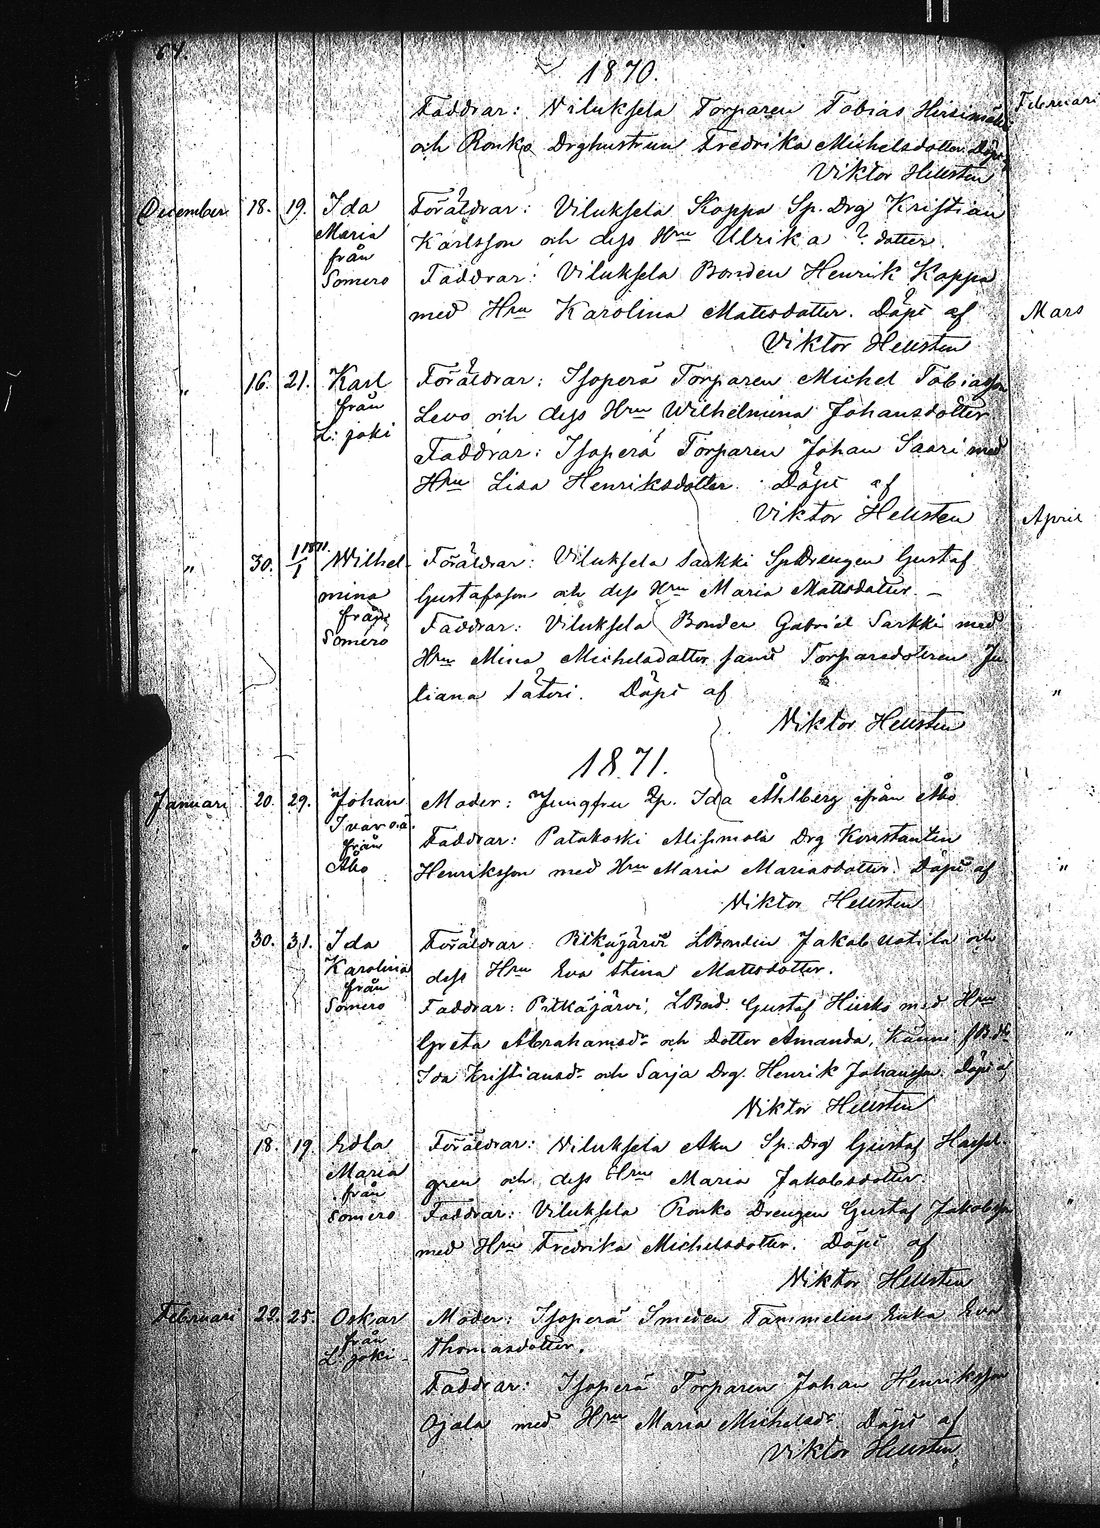 64.
1870.
Faddrar: Viluksela Torparen Tobias Hirsimäki
och Ronko Drghustrun Fredrika Michelsdotter. Döpt af
Viktor Hellsten
December 18. 19. Ida Maria från Somero
Föräldrar: Viluksela Koppa Sp. Drg Kristian
Karlsson och dess Hru Ulrika ? dotter.
Faddrar: Viluksela Bonden Henrik Koppa
med Hru Karolina Matsdotter. Döpt af
Viktor Hellsten
" 16. 21. Karl från L:joki
Föräldrar: Isoperä Torparen Michel Tobiasson
Levo och dess Hru Wilhelmina Johansdotter
Faddrar: Isoperä Torparen Johan Saari med
Hru Lisa Henriksdotter. Döpt af
Viktor Hellsten
" 30. 1/1 1871. Wilhelmina från Somero
Föräldrar: Viluksela Sarkki Sp Drengen Gustaf
Gustafsson och dess Hru Maria Matsdotter. –
Faddrar: Viluksela Bonden Gabriel Sarkki med
Hru Mina Michelsdotter samt Torparedottren Ju-
liana Säteri. Döpt af
Viktor Hellsten
1871.
Januari 20. 29. Johan Ivar o.ä. från Åbo
Moder: Jungfru Ida Åhlberg ifrån Åbo
Faddrar: Palakoski Drg Konstantin
Henriksson med Hru Maria Mariasdotter. Döpt af
Viktor Hellsten
" 30. 31. Ida Karolina från Somero
Föräldrar: Pitkäjärvi LBonden Jakob Uotila och
dess Hru Eva Stina Matsdotter.
Faddrar: Pitkäjärvi, LBond. Gustaf Hirsko med Hru
Greta Abrahamsdr och Dotter Amanda,
Ida Kristiansdr och Sarja Drg. Henrik Johansson. Döpt af
Viktor Hellsten
" 18. 19. Edla Maria från Somero
Föräldrar: Viluksela Aku Sp. Drg Gustaf
gren och dess Hru Maria Jakobsdotter.
Faddrar: Viluksela Ronko Drengen Gustaf Jakobsson
med Hru Fredrika Michelsdotter. Döpt af
Viktor Hellsten
Februari 22. 25. Oskar från L:joki
Moder: Isoperä Smeden Tammelins Enka Eva
Thomasdotter.
Faddrar: Isoperä Torparen Johan Henriksson
Ojala med Hru Maria Michelsdr Döpt af
Viktor Hellsten
Februari
Mars
April
"
"
"
"